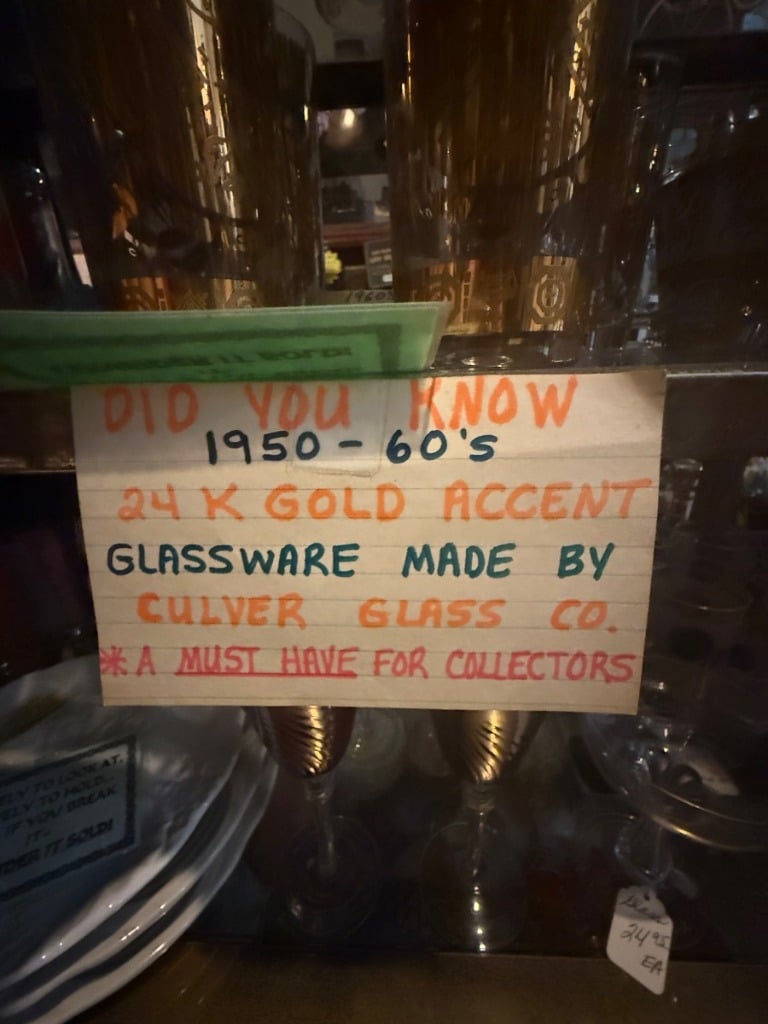 1960s
IT SOLD!
DID YOU KNOW
1950 - 60's
24 K GOLD ACCENT
GLASSWARE MADE BY
CULVER GLASS CO.
* A MUST HAVE FOR COLLECTORS
ELY TO LOOK AT,
ELY TO HOLD...
IF YOU BREAK
IT...
DER IT SOLD!
24 95
EA